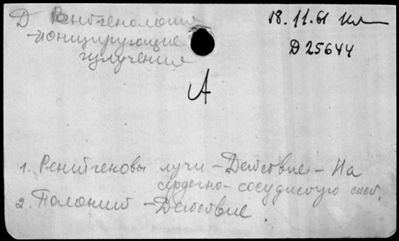 Д Рентгенология
18.11.61 Кл
-ионизирующие
излучения
Д25644
А
1. Рентгеновы лучи - Действие - На
сердечно-сосудистую сист.
2. Полоний - Действие.